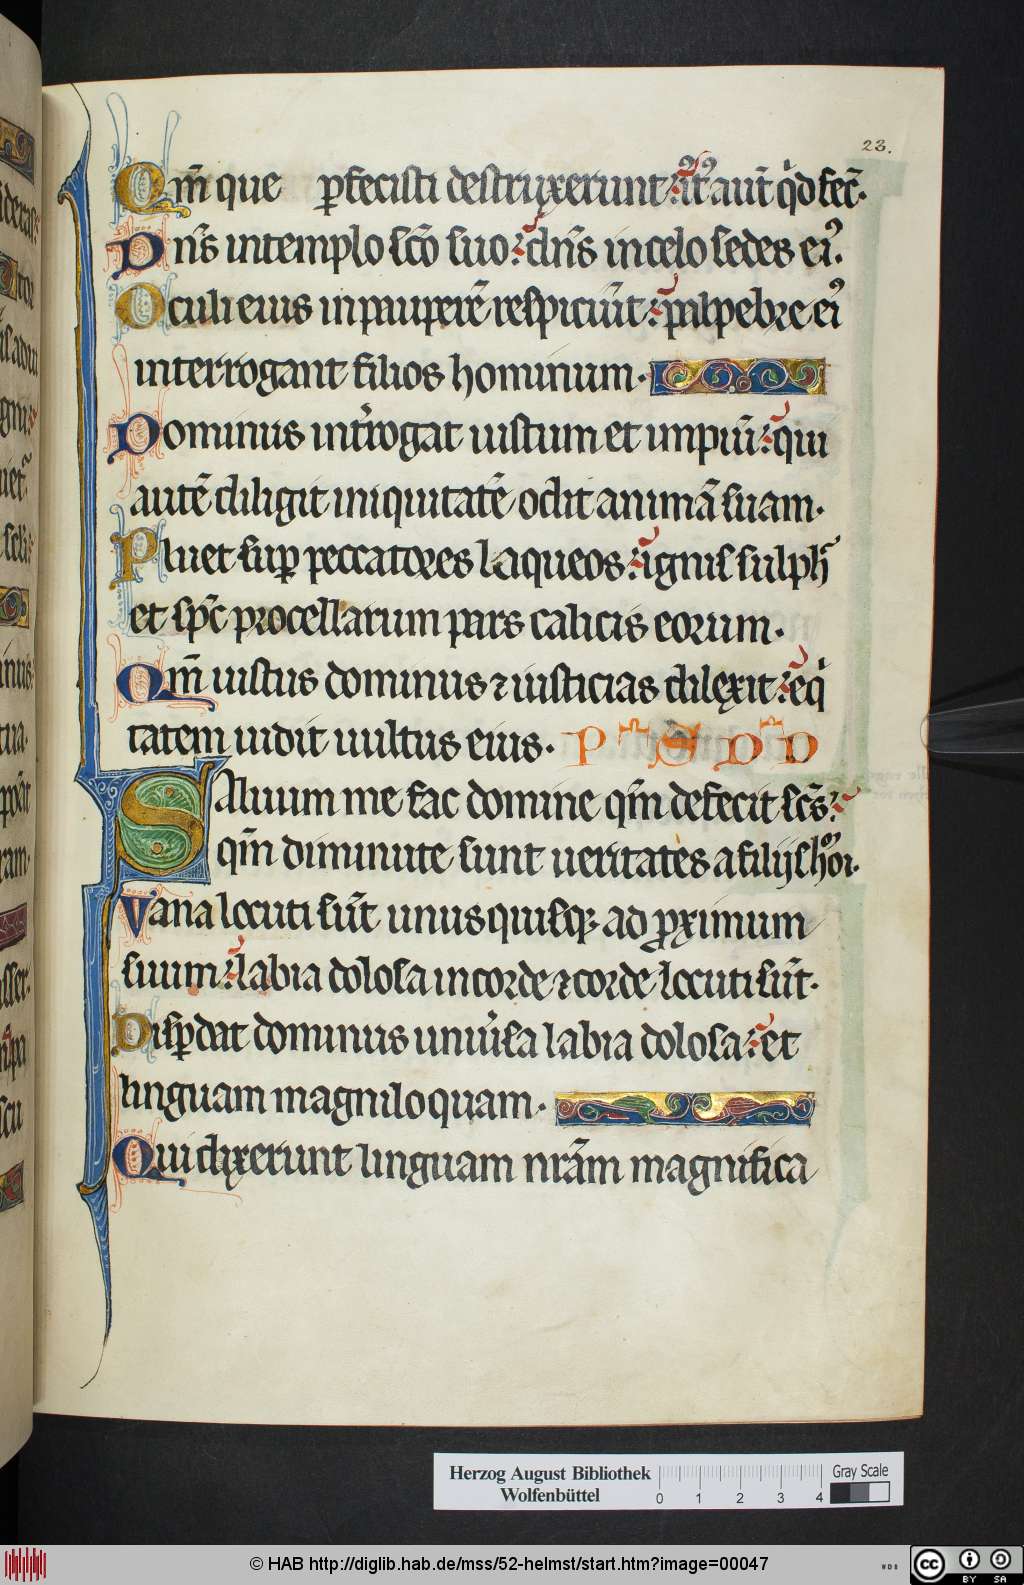 23.
Qm̅ que p̱fecisti destruxerunt: iꝰtꝰ aut̅ qͥd fec̅.
Dn̅s in templo sc̅o suo: dn̅s in celo sedes eiꝰ.
Oculi eius in paupere̅ respiciu̅t: palpebre eiꝰ
interrogant filios hominum.
Dominus int̓rogat iustum et impiu̅: qui
aute̅ diligit iniquitate̅ odit anima̅ suam.
Pluet sup̱ peccatores laqueos: ignis sulph̅
et sp̅c procellarum pars calicis eorum.
Qm̅ iustus dominus ⁊ iusticias dilexit: eqͥ
tatem uidit uultus eius. P S D D
Saluum me fac domine qm̅ defecit sc̅s:
qm̅ diminute sunt ueritates a filijs hoı̅.
Vana locuti su̅t unusquisq; ad ꝓximum
suum: labia dolosa in corde ⁊ corde locuti su̅t.
Disꝑdat dominus uniu̓sa labia dolosa: et
linguam magniloquam.
Qui dixerunt linguam nr̅am magnifica
Herzog August Bibliothek
Wolfenbüttel
0 1 2 3 4
Gray Scale
© HAB http://diglib.hab.de/mss/52-helmst/start.htm?image=00047
cc BY SA